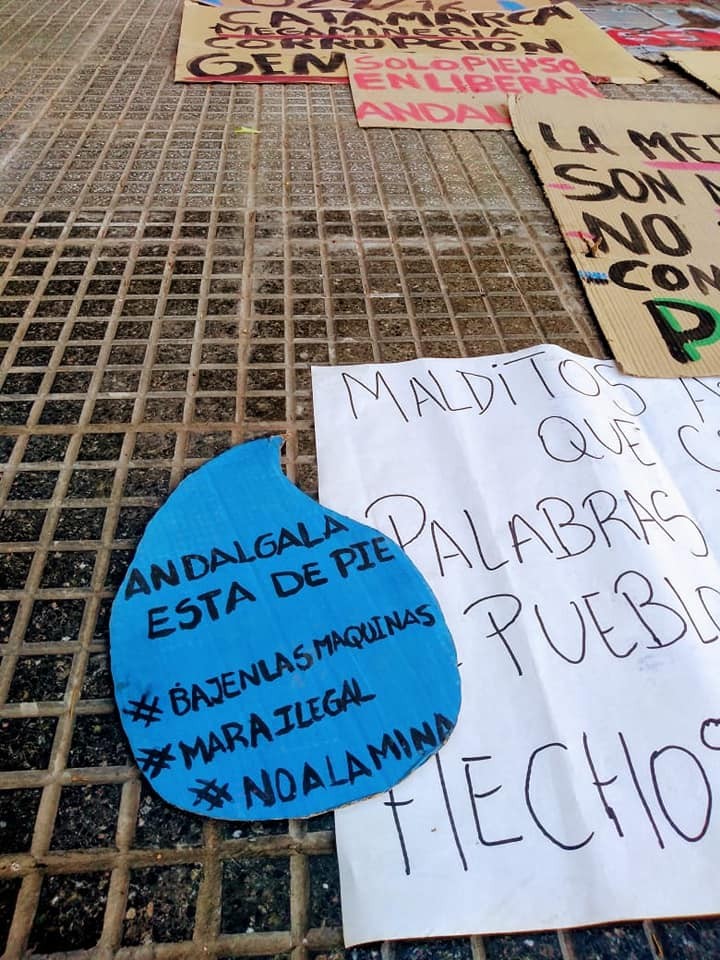 CATAMARCA
MEGAMINERIA
CORRUPCION
GEN
SOLO PIENSO
EN LIBERAR
ANDAL
LA MEE
SON
NO
CON
P
MALDITOS
QUE C
PALABRAS
PUEBLO
HECHOS
ANDALGALA
ESTA DE PIE
# BAJENLASMAQUINAS
# MARA ILEGAL
# NOALAMINA